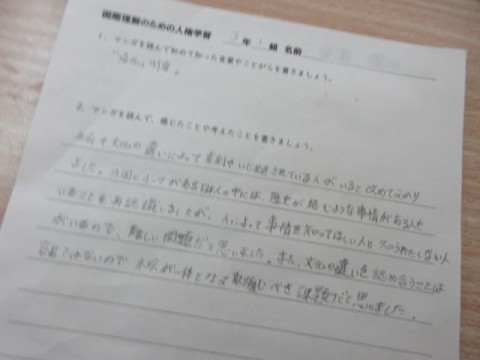 国際理解のための人権学習 3年1組 名前
1、マンガを読んで初めて知った言葉やことがらを書きましょう。
制度。
2、マンガを読んで、感じたことや考えたことを書きましょう。
や文化の違いによって差別やいじめをされている人がいると改めてわかり
ました。外国にルーツがある日本人の中には、歴史が絡むような事情がある人も
いることを再認識しましたが、人によって事情を知ってほしい人と知られたくない人
がいるので、難しい問題だと思いました。また、文化の違いを認め合うことは
容易ではないので が一体となって取り組むべき課題だと思いました。